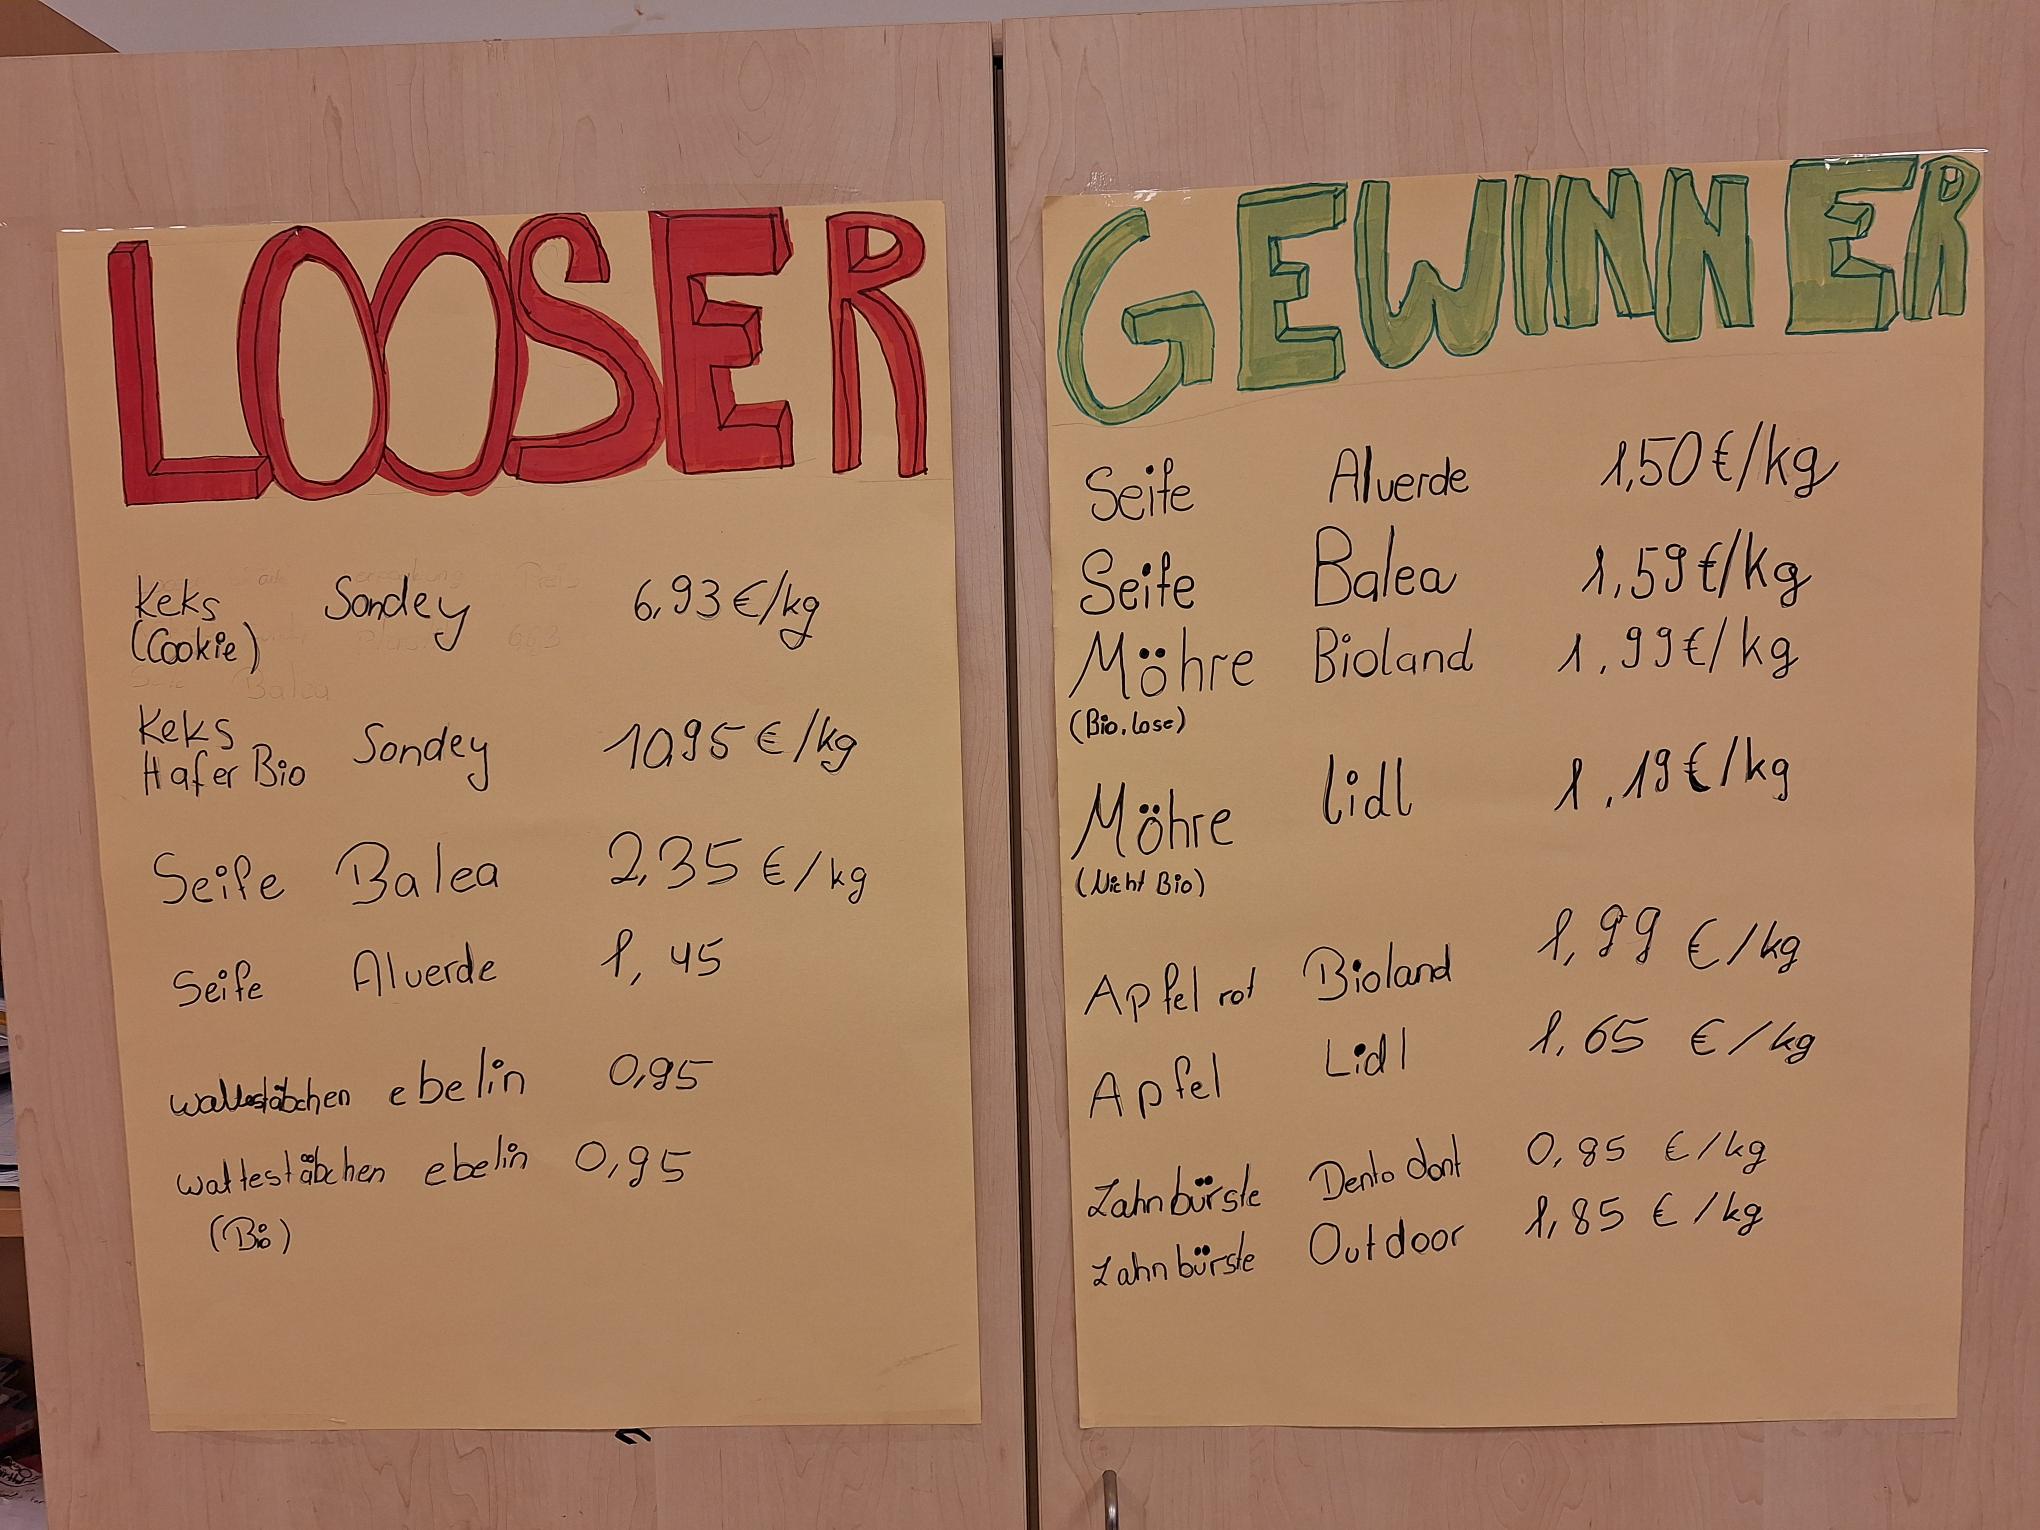 LOOSER
Keks Sondey 6,93€/kg
(Cookie)
Keks
Hafer Bio Sondey 10,95€/kg
Seife Balea 2,35 €/kg
Seife Alverde 1,45
wattestäbchen ebelin 0,95
wattestäbchen ebelin 0,95
(Bio)
GEWINNER
Seife Alverde 1,50€/kg
Seife Balea 1,59€/kg
Möhre Bioland 1,99€/kg
(Bio, lose)
Möhre Lidl 1,19€/kg
(Nicht Bio)
Apfel rot Bioland 1,99 €/kg
Apfel Lidl 1,65 €/kg
Zahnbürste Dento dont 0,85 €/kg
Zahnbürste Outdoor 1,85 €/kg